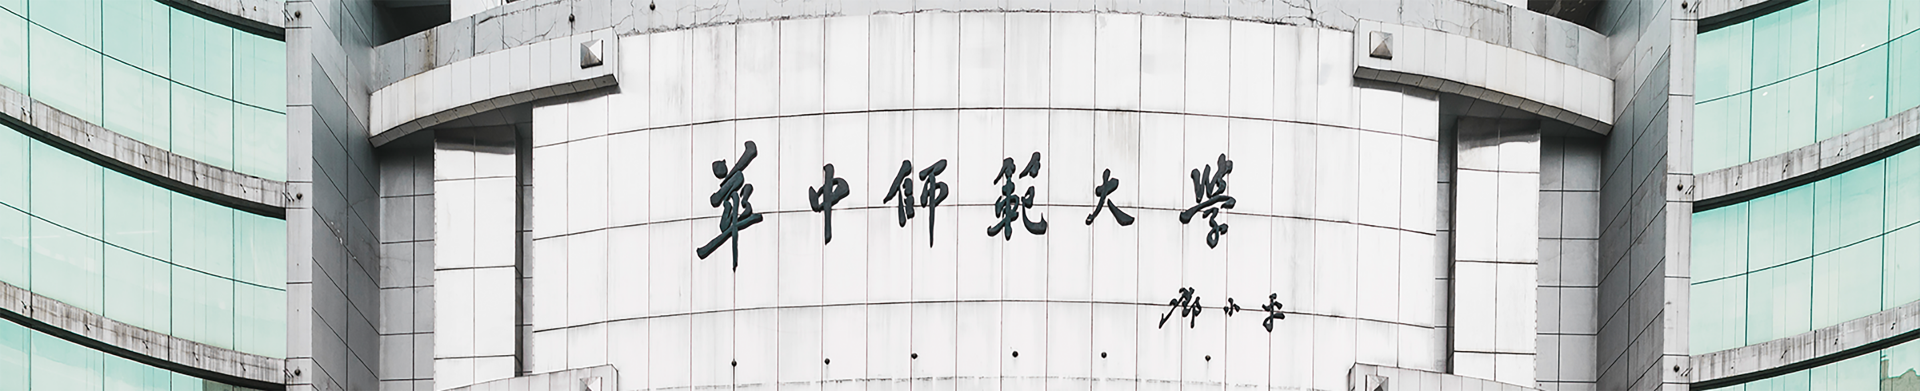 華中師範大學
鄧小平